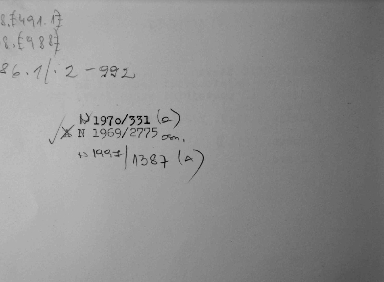 8.7491.17
8.7987
86.1/.2-992
N 1970/331 (a)
N 1969/2775
N 1997/1387 (a)